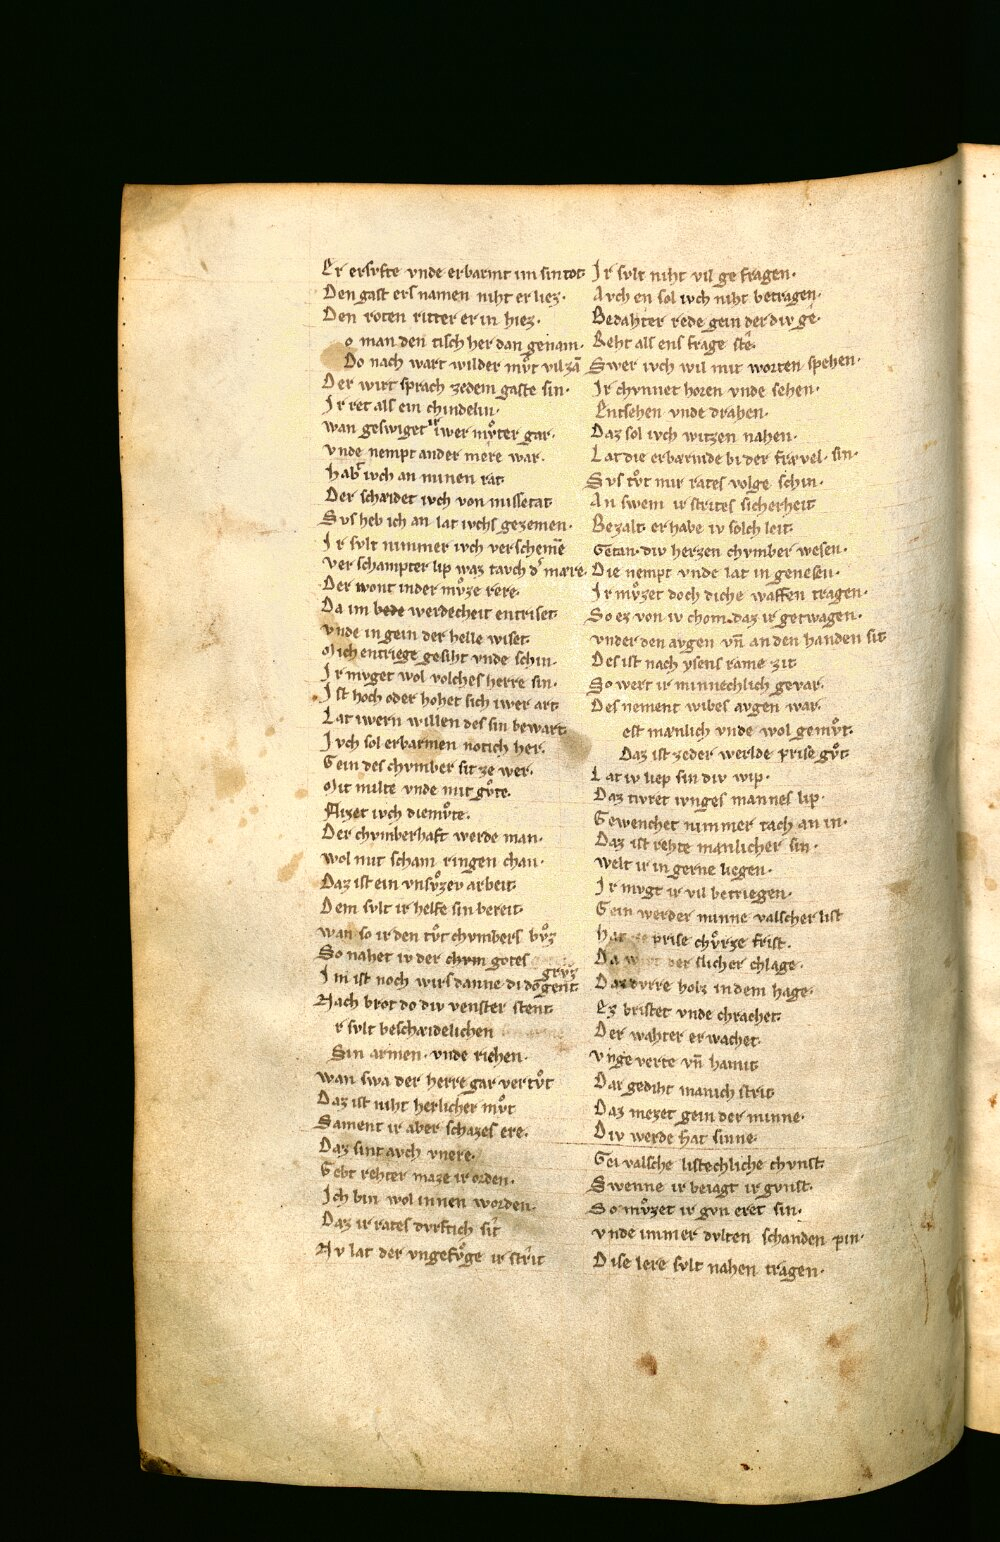 Er ersvfte vnde erbarmt im sin tot
Den gast erſ namen niht er liez·
Den roten ritter er in hiez·
o man den tisch her dan genam·
Do nach wart wilder mvͦt vil zā
Der wirt sprach zedem gaste sin·
Ir ret alſ ein chindelin·
wan geswiget ir iwer mvͦter gar·
vnde nempt ander mere war·
habt ivch an minen rat
Der schæidet ivch von missetat
Svs heb ich an lat ivchs gezemen·
Ir svlt nimmer ivch verschemē
ver schampter lip waz tarch d' mære·
Der wont inder mvͦze rere·
Da im bede werdecheit entriset
vnde in gein der helle wiset·
Mich entriege gesiht vnde schin·
Ir mvget wol volches herre sin·
Ist hoch oder hohet sich iwer art
Lat iwern willen des sin bewart
Ivch sol erbarmen notich her·
Gein des chvmber sit ze wer·
Mit milte vnde mit gvͦte·
Flizet ivch diemvͦte·
Der chvmberhaft werde man·
wol mit scham ringen chan·
Daz ist ein vnsvͦzev arbeit·
Dem svlt ir helfe sin bereit·
wan so ir den tvͦt chvmbers bvͦz
So nahet iv der chvm gotes
grvͦz
Im ist noch wirs danne di do gent·
Nach brot do div venster stent·
r svlt beschæidelichen
Sin armen· vnde richen·
wan swa der herre gar vertvͦt
Daz ist niht herlicher mvͦt
Sament ir aber schazes ere·
Daz sint avch vnere·
Gebt rehter maze ir orden·
Ich bin wol innen worden·
Daz ir rates dvrftich sit
Nv lat der vngefvͦge ir strit
Ir svlt niht vil ge fragen·
Avch en sol ivch niht betragen·
Bedahter rede gein der div ge·
Reht alſ enſ frage ste·
Swer ivch wil mit worten spehen·
Ir chvnnet horen vnde sehen·
Entsehen vnde drahen·
Daz sol ivch witzen nahen·
Lat die erbærmde bi der frævel· sin·
Svs tvͦt mir rates volge schin·
An swem ir strites sicherheit
Bezalt· er habe iv solch leit·
Getan· div herzen chvmber wesen·
Die nempt vnde lat in genesen·
Ir mvͦzet doch diche waffen tragen·
So ez von iv chom· daz ir getwagen·
vnder den avgen vn̄ an den handen sit
Des ist nach ysens rame zit
So wert ir minnechlich gevar·
Des nement wibes avgen war·
est mænlich vnde wol gemvͦt·
Daz ist zeder werlde prise gvͦt
Lat iv liep sin div wip·
Daz tivret ivnges mannes lip·
Gewenchet nimmer tach an in·
Daz ist rehte manlicher sin·
welt ir in gerne liegen·
Ir mvgt ir vil betriegen·
Gein werder minne valscher list
Hat ze prise chvͦrze frist·
Da wirt der slicher chlage·
Daz dvrre holz in dem hage·
Ez bristet vnde chrachet·
Der wahter erwachet·
vnge verte vn̄ hamit
Dar gediht manich strit
Daz mezet gein der minne·
Div werde hat sinne·
Gei valsche listechliche chvnst·
Swenne ir beiagt ir gvnst·
So mvͦzet ir gvn eret sin·
vnde immer dvlten schanden pin·
Dise lere svlt nahen tragen·